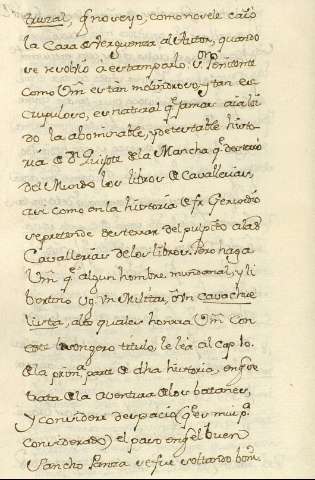 trural, q no veyo, como no le cayó
la Cara de Verguenza al Autor, quando
se resolbió á estamparlo. Vn Penitente
como Vm. es tàn melindroso, y tan es
crupuloso, es natural q jamas aya lei
do la abominable, y detestable histo-
ria de Dn. Quijote de la Mancha q desterró
del Mundo los libros de Cavallerias,
asi como en la historia de fr. Gerundio
se pretende desterrar del pulpito a las
Cavallerias de los libros. Pero haga
Vm. q algun hombre mundanal, y li
bertino vg. vn Militar, ò vn Cavachue
lista, a los quales honrra Vm. con
este honrgero titulo, le lea al Capto.
de la primª. parte de dha historia, en q se
trata de la aventura de los batanes,
y considere despacio (q es muy pª.
considerado) el paso en q el buen
Sancho Panza se fue soltando bonˢ.